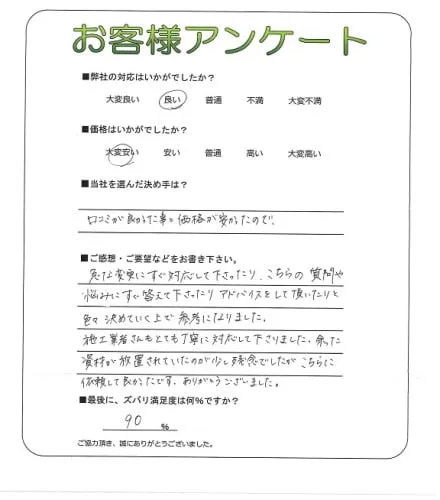 お客様アンケート
■弊社の対応はいかがでしたか?
大変良い 良い 普通 不満 大変不満
■価格はいかがでしたか?
大変安い 安い 普通 高い 大変高い
■当社を選んだ決め手は?
口コミが良かった事と価格が安かったので。
■ご感想・ご要望などをお書き下さい。
急な変更にすぐ対応して下さったり、こちらの質問や
悩みにすぐ答えて下さったりアドバイスをして頂いたりと
色々決めていく上で参考になりました。
施工業者さんもとても丁寧に対応して下さりました。余った
資材が放置されていたのが少し残念でしたがこちらに
依頼して良かったです。ありがとうございました。
■最後に、ズバリ満足度は何%ですか?
90 %
ご協力頂き、誠にありがとうございました。